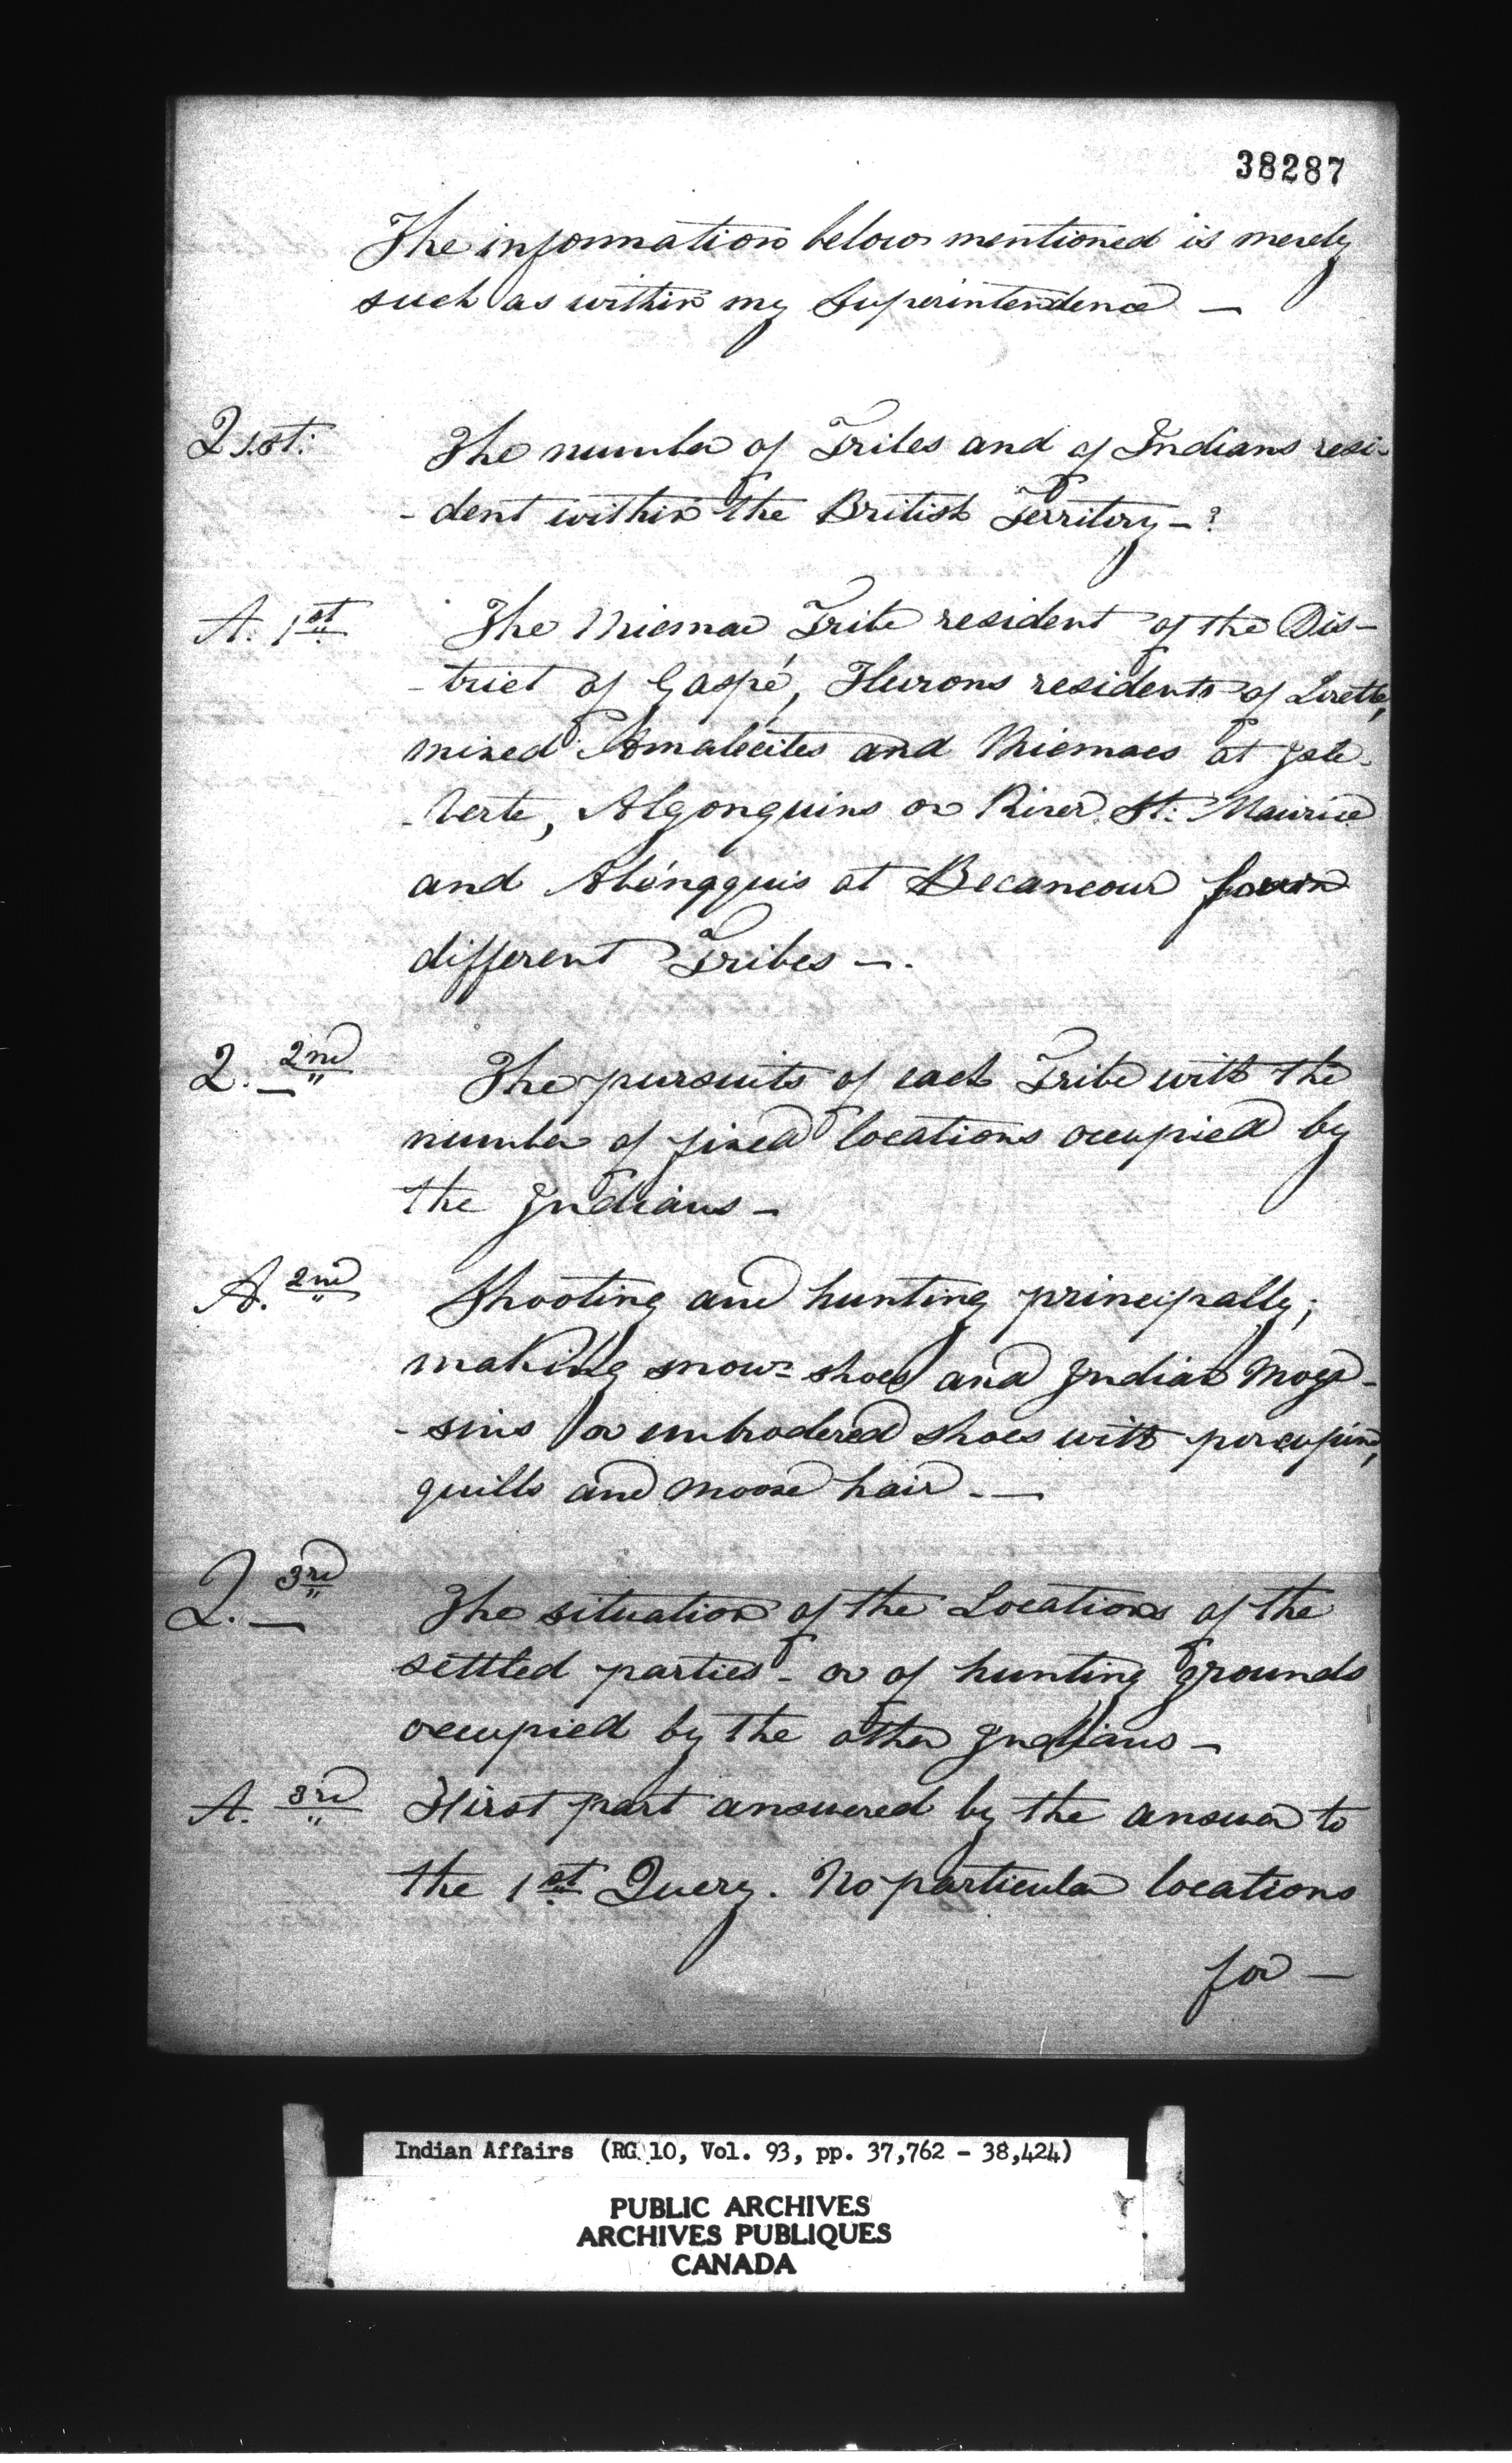 38287
The information below mentioned is merely
such as within my Superintendence —
Q 1.st: The number of Tribes and of Indians resi-
- dent within the British Territory - ?
A. 1st The Micmac Tribe resident of the Dis-
- trict of Gaspé, Hurons residents of Lorette,
mixed Amalécites and Micmacs at Isle-
- Verte, Algonquins on River St. Maurice
and Abénaquis at Becancour
different Tribes —.
Q. 2nd The pursuits of each Tribe with the
number of fixed locations occupied by
the Indians -
A. 2nd Shooting and hunting principally;
making snow= shoes and Indian Moga-
- sins or embrodered shoes with porcupine,
quills and moose hair. —
Q. 3rd The situation of the Locations of the
settled parties - or of hunting grounds
occupied by the other Indians -
A. 3rd First part answered by the answer to
the 1st Query. No particular locations
for —
Indian Affairs (RG 10, Vol. 93, pp. 37,762 - 38,424)
PUBLIC ARCHIVES
ARCHIVES PUBLIQUES
CANADA